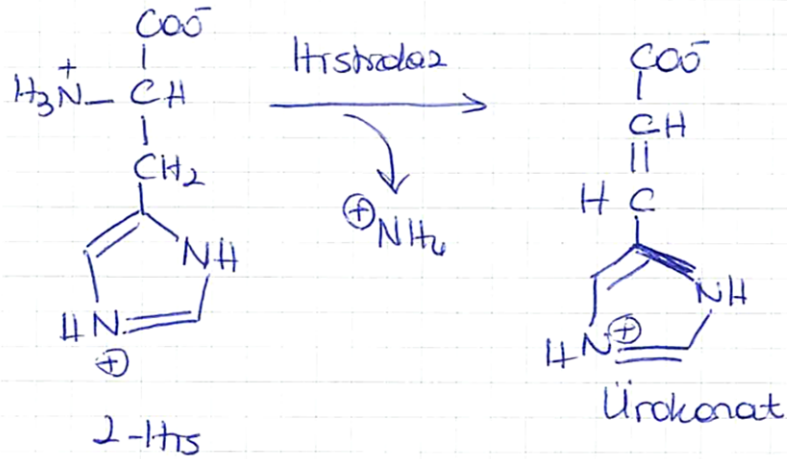 COO⁻
H₃N⁺– CH
CH₂
NH
HN
⊕
2-His
Histidaz
⊕NH₄
COO⁻
CH
HC
NH
HN⊕
Ürokanat